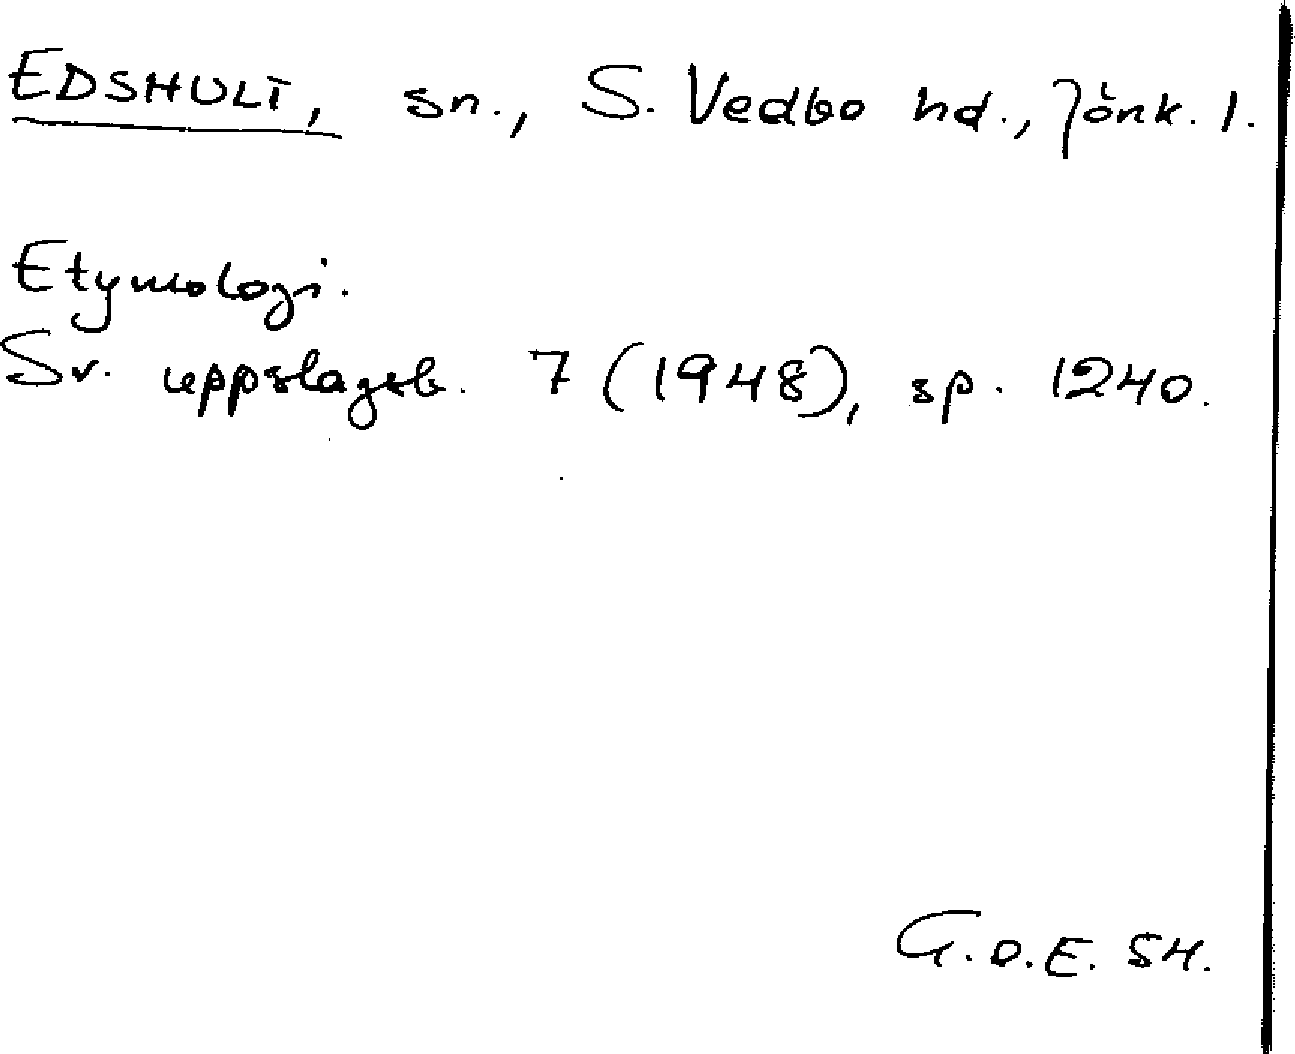 EDSHULT, sn., S. Vedbo hd., Jönk. l.
Etymologi.
Sv. uppslagsb. 7 (1948), sp. 1240.
G.O.E. 54.